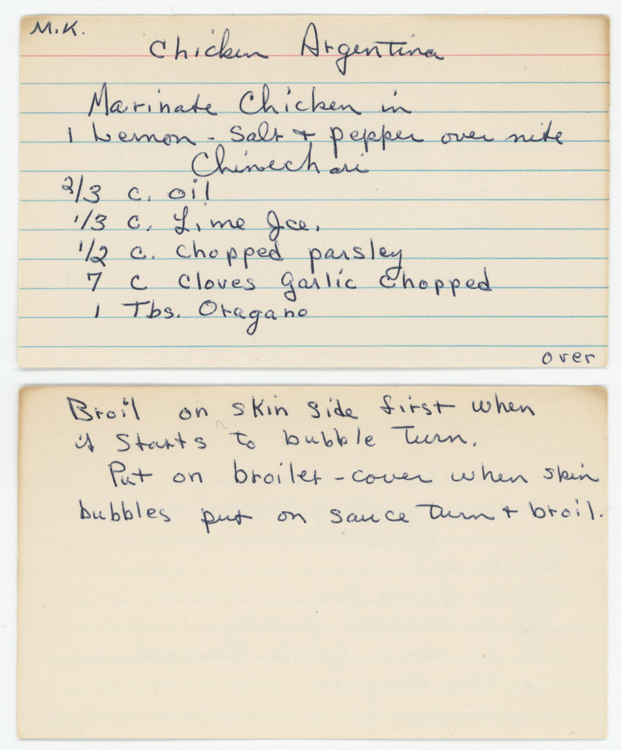 M.K.
Chicken Argentina
Marinate Chicken in
1 Lemon - Salt + pepper over nite
Chimechari
2/3 c. oil
1/3 c. Lime Jce.
1/2 c. chopped parsley
7 c cloves garlic chopped
1 Tbs. Oragano
over
Broil on skin side first when
it Starts to bubble Turn.
Put on broiler - cover when skin
bubbles put on sauce Turn + broil.